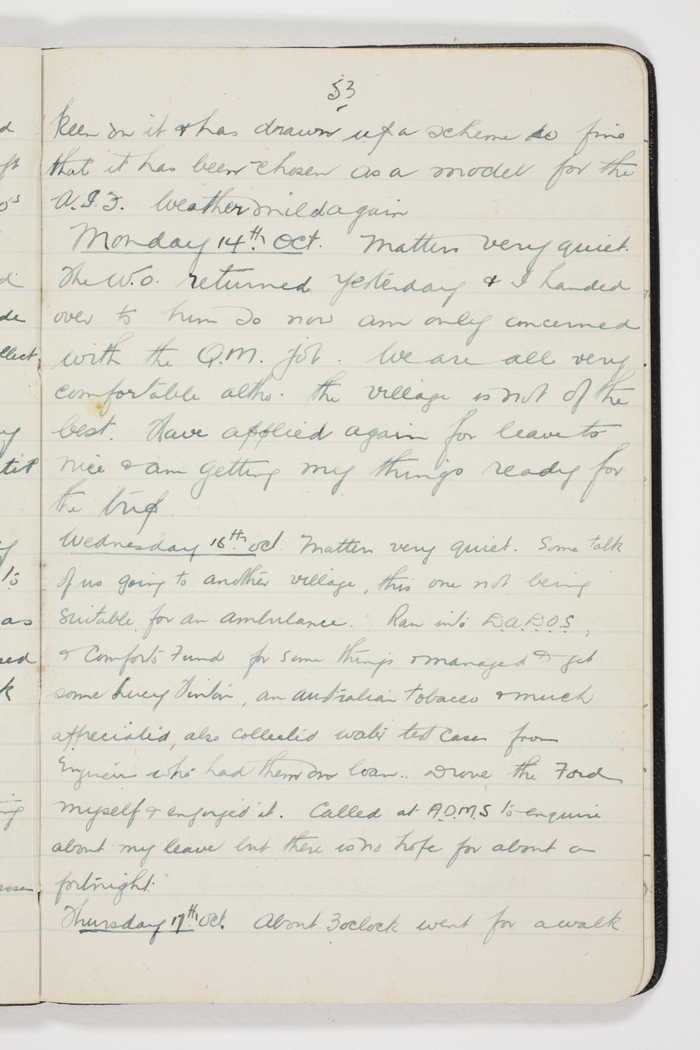 53
keen on it & has drawn up a scheme so fine
that it has been chosen as a model for the
A.I.F. Weather mild again
Monday 14th Oct. Matters very quiet.
The W.O. returned yesterday & I handed
over to him so now am only concerned
with the Q.M. job. We are all very
comfortable altho. the village is not of the
best. Have applied again for leave to
Nice & am getting my things ready for
the trip.
Wednesday 16th Oct. Matters very quiet. Some talk
of us going to another village, this one not being
suitable for an ambulance. Ran into D.A.D.O.S,
& Comforts Fund for some things & managed to get
some Lucy Hinton, an Australian tobacco & much
appreciated, also collected water test cases from
Engineers who had them on loan.. Drove the Ford
myself & enjoyed it. Called at A.D.M.S to enquire
about my leave but there is no hope for about a
fortnight.
Thursday 17th Oct. About 3oclock went for a walk
d
ft
os
di
de
llect
tit
to
as
sed
k